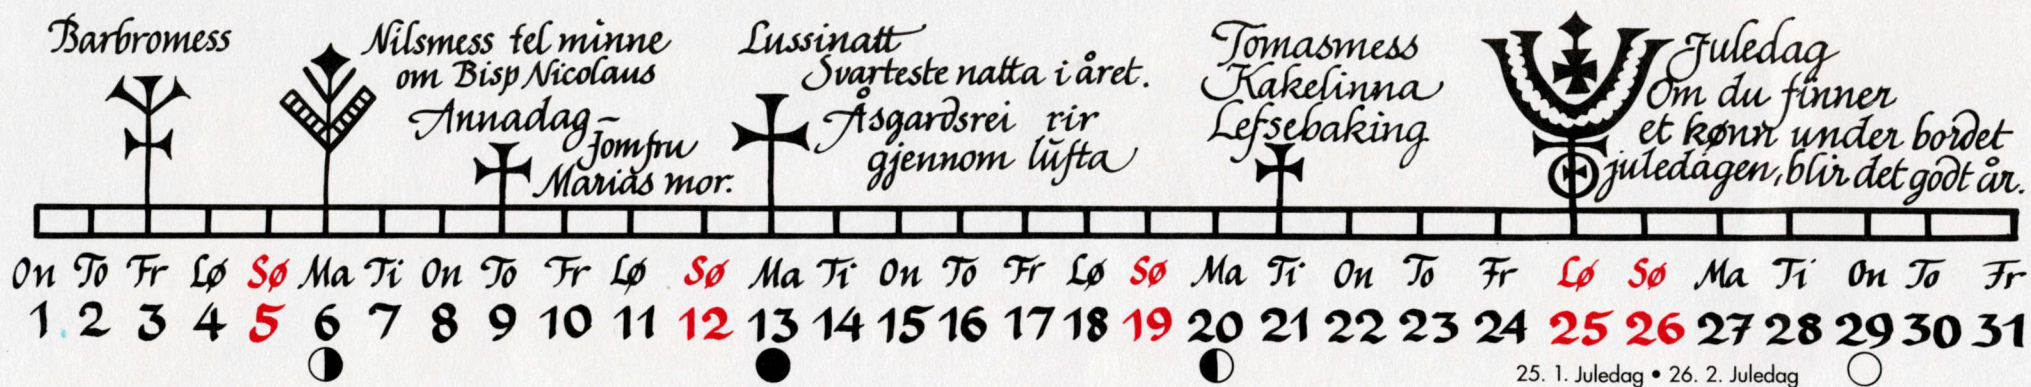 Barbromess
Nilsmess tel minne
om Bisp Nicolaus
Annadag –
Jomfru
Marias mor.
Lussinatt
Svarteste natta i året.
Åsgardsrei rir
gjennom lufta
Tomasmess
Kakelinna
Lefsebaking
Juledag
Om du finner
et kønn under bordet
juledagen, blir det godt år.
On To Fr Lø Sø Ma Ti On To Fr Lø Sø Ma Ti On To Fr Lø Sø Ma Ti On To Fr Lø Sø Ma Ti On To Fr
1 2 3 4 5 6 7 8 9 10 11 12 13 14 15 16 17 18 19 20 21 22 23 24 25 26 27 28 29 30 31
25. 1. Juledag • 26. 2. Juledag